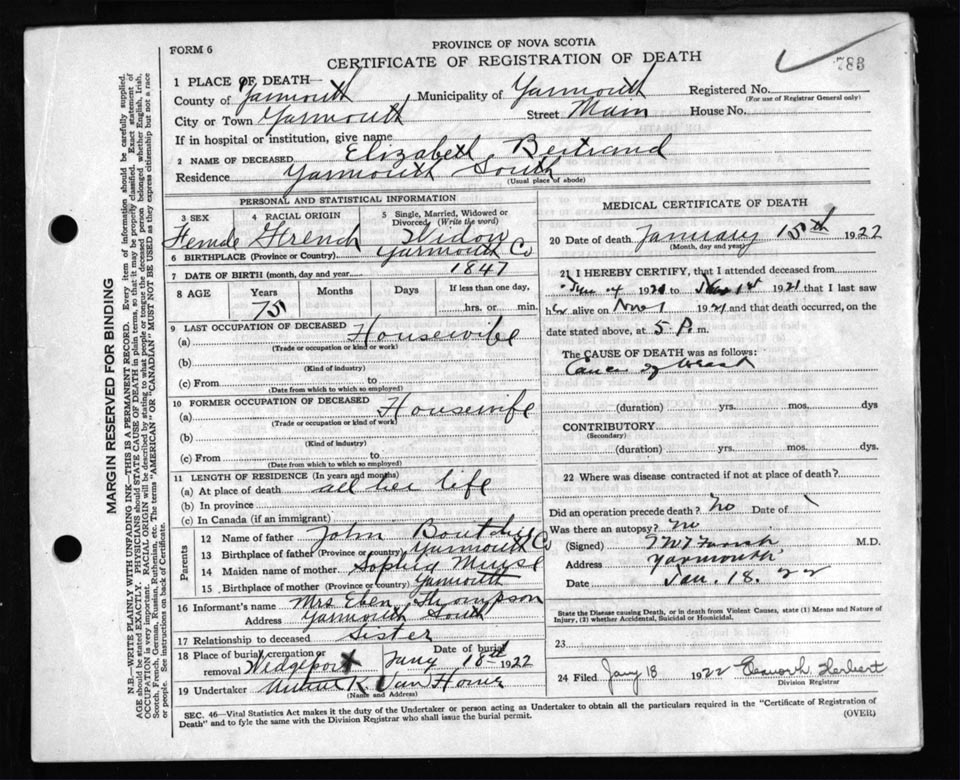 PROVINCE OF NOVA SCOTIA
FORM 6
CERTIFICATE OF REGISTRATION OF DEATH
783
1 PLACE OF DEATH—
County of Yarmouth Municipality of Yarmouth Registered No.
(For use of Registrar General only)
City or Town Yarmouth Street Main House No.
If in hospital or institution, give name
2 NAME OF DECEASED Elizabeth Bertrand
Residence Yarmouth South
(Usual place of abode)
PERSONAL AND STATISTICAL INFORMATION
3 SEX 4 RACIAL ORIGIN 5 Single, Married, Widowed or Divorced (Write the word)
Female French Widow
6 BIRTHPLACE (Province or Country) Yarmouth Co
7 DATE OF BIRTH (month, day and year) 1847
8 AGE Years Months Days If less than one day,
75 hrs. or min.
9 LAST OCCUPATION OF DECEASED
(a) Housewife
(Trade or occupation or kind or work)
(b)
(Kind of industry)
(c) From to
(Date from which to which so employed)
10 FORMER OCCUPATION OF DECEASED
(a) Housewife
(Trade or occupation or kind of work)
(b)
(Kind of industry)
(c) From to
(Date from which to which so employed)
11 LENGTH OF RESIDENCE (In years and months)
(a) At place of death all her life
(b) In province
(c) In Canada (if an immigrant)
Parents
12 Name of father John
13 Birthplace of father (Province or country) Yarmouth Co
14 Maiden name of mother Sophia Muise
15 Birthplace of mother (Province or country) Yarmouth
16 Informant's name Mrs Eben Thompson
Address Yarmouth South
17 Relationship to deceased Sister
18 Place of burial, cremation or removal Wedgeport Date of burial Jany 18th 1922
19 Undertaker K Van Horne
(Name and Address)
MEDICAL CERTIFICATE OF DEATH
20 Date of death January 15th 1922
(Month, day and year)
21 I HEREBY CERTIFY, that I attended deceased from
1921 to Nov 1st 1921 that I last saw
her alive on Nov 1 1921 and that death occurred, on the
date stated above, at 5 P. m.
The CAUSE OF DEATH was as follows:
Cancer of breast
(duration) yrs. mos. dys
CONTRIBUTORY
(Secondary)
(duration) yrs. mos. dys
22 Where was disease contracted if not at place of death?
Did an operation precede death? No Date of \
Was there an autopsy? No
(Signed) M.D.
Address Yarmouth
Date Jan. 18. 22
State the Disease causing Death, or in death from Violent Causes, state (1) Means and Nature of
Injury, (2) whether Accidental, Suicidal or Homicidal.
23
24 Filed Jany 18 1922 Herbert
Division Registrar
SEC. 46—Vital Statistics Act makes it the duty of the Undertaker or person acting as Undertaker to obtain all the particulars required in the "Certificate of Registration of
Death" and to fyle the same with the Division Registrar who shall issue the burial permit. (OVER)
MARGIN RESERVED FOR BINDING
N.B.—WRITE PLAINLY WITH UNFADING INK—THIS IS A PERMANENT RECORD. Every item of information should be carefully supplied.
AGE should be stated EXACTLY. PHYSICIANS should STATE CAUSE OF DEATH in plain terms, so that it may be properly classified. Exact statement of
OCCUPATION is very important. RACIAL ORIGIN will be described by stating to what people or tongue the deceased person belonged whether English, Irish,
Scotch, French, German, Russian, Ruthenian, etc. The terms "AMERICAN" OR "CANADIAN" MUST NOT BE USED as they express citizenship but not a race
or people. See instructions on back of Certificate.